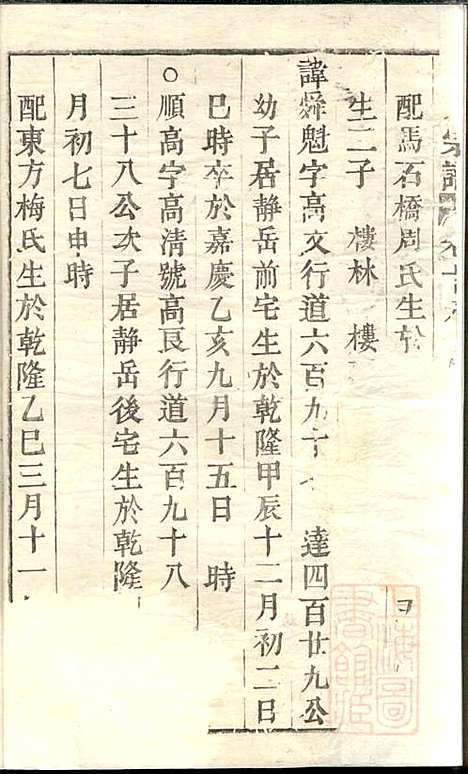 配馬石橋周氏生於
生二子　樓林　樓
諱舜魁字高文行道六百九十　達四百廿九公
幼子居靜岳前宅生於乾隆甲辰十二月初二日
巳時卒於嘉慶乙亥九月十五日　時
○順高字高清號高良行道六百九十八
三十八公次子居靜岳後宅生於乾隆
月初七日申時
配東方梅氏生於乾隆乙巳三月十一